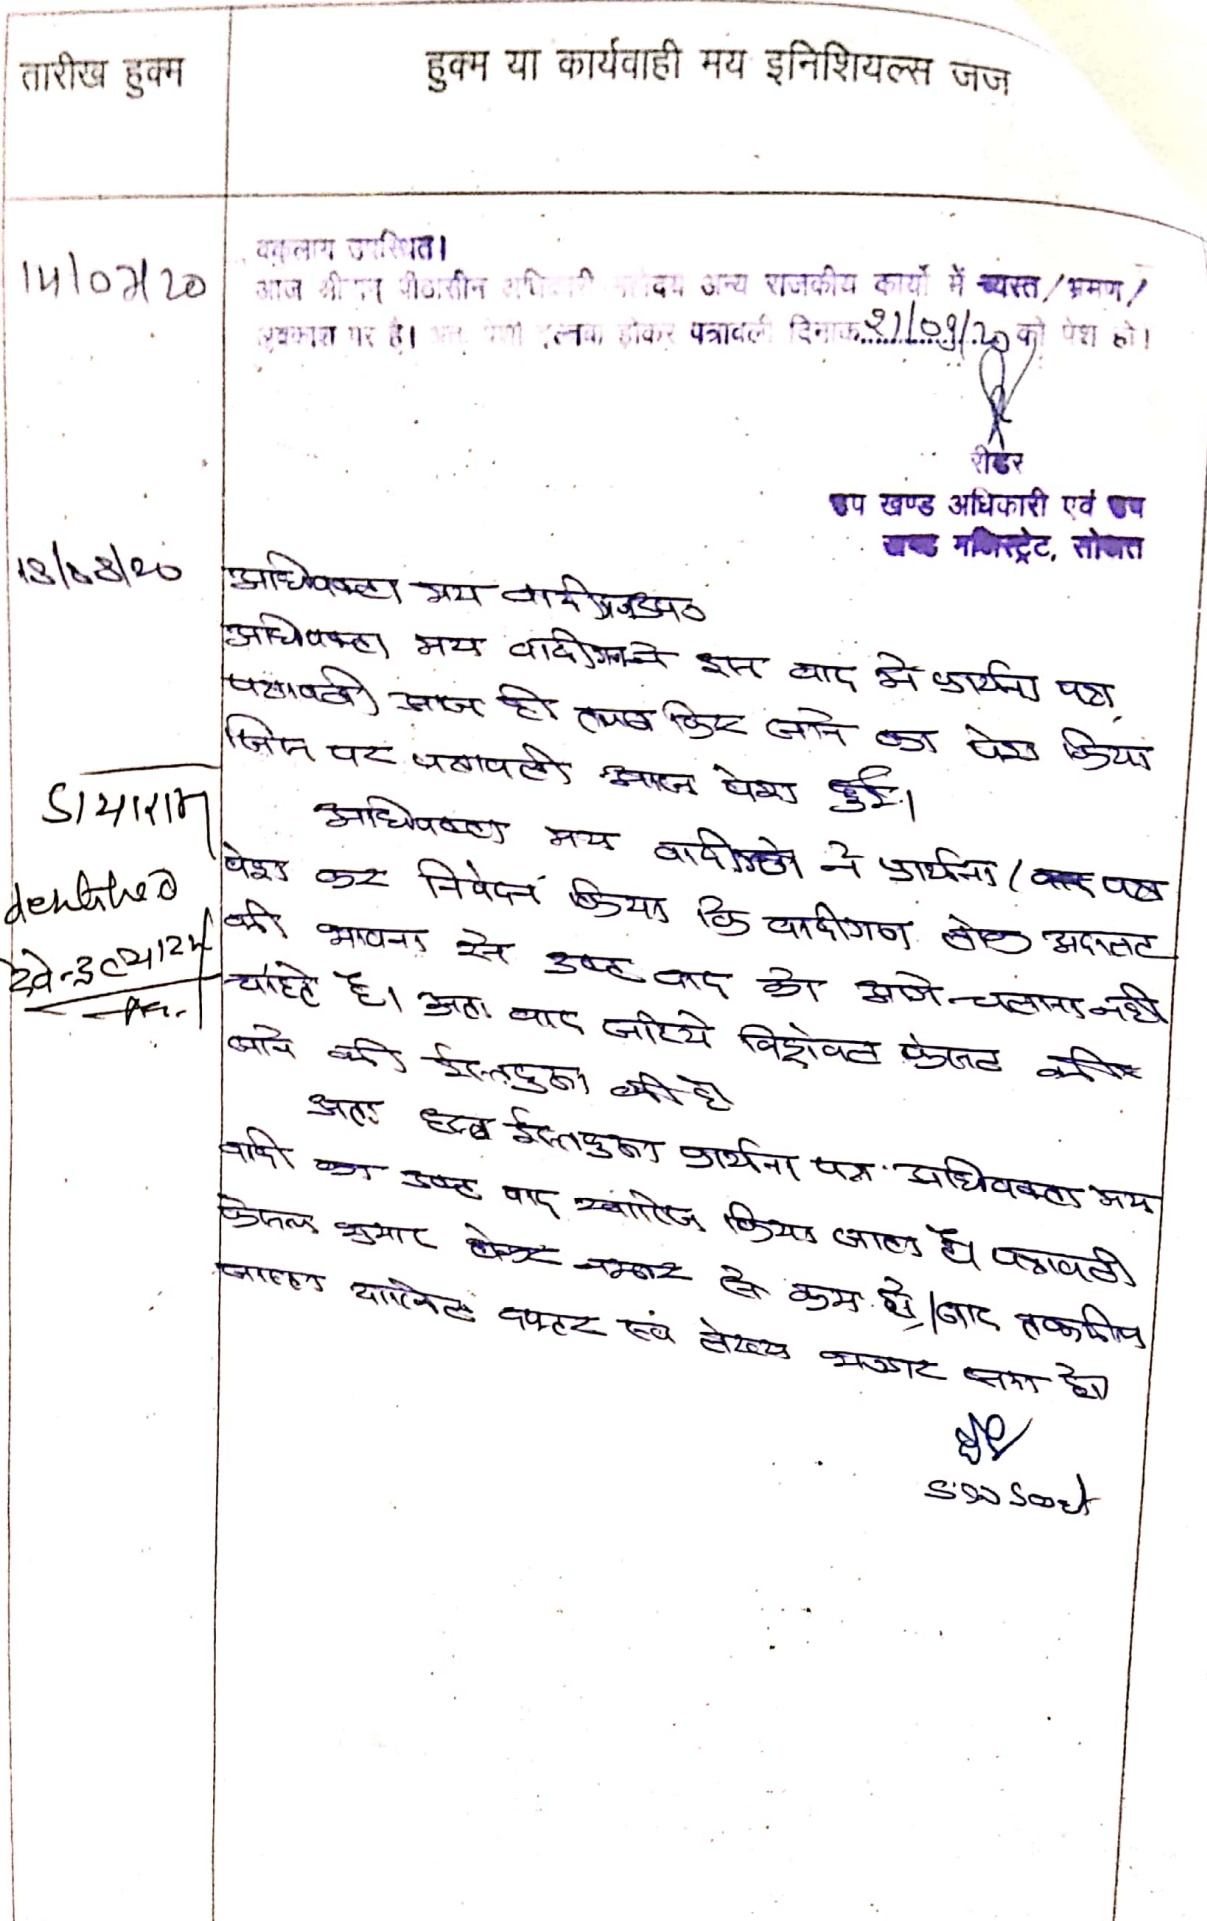 तारीख हुक्म
हुक्म या कार्यवाही मय इनिशियल्स जज
14/07/20
वकुलाय उपस्थित।
आज श्रीमान पीठासीन अधिकारी महोदय अन्य राजकीय कार्यो में व्यस्त/भ्रमण/
अवकाश पर है। अतः पेशी होकर पत्रावली दिनांक 21/09/20 को पेश हो।
रीडर
उप खण्ड अधिकारी एवं उप
खण्ड मजिस्ट्रेट, सोजत
13/08/20
अधिवक्ता मय वादी
अधिवक्ता मय वादीगण ने इस वाद मे प्रार्थना पत्र
पत्रावली आज ही तलब किए जाने का पेश किया
जिस पर पत्रावली आज पेश हुई।
अधिवक्ता मय वादीगणो ने प्रार्थना पत्र
पेश कर निवेदन किया कि वादीगण लोक अदालत
की भावना से उक्त वाद को आगे चलाना नही
चाहते है। अतः वाद जरिये
जाने की ईस्तदुआ की है
अतः ईस्तदुआ प्रार्थना पत्र अधिवक्ता मय
वादी का उक्त वाद खारिज किया जाता है। पत्रावली
फैसल शुमार होकर नम्बर से कम हो, बाद तकमील
दफ्तर
डायाराम
dentified